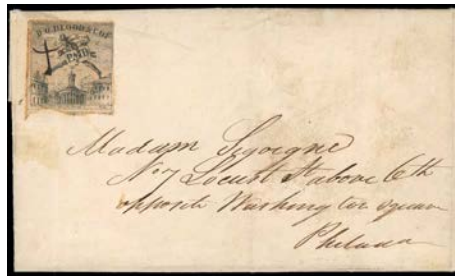 D.O. BLOOD & Co's
PAID
Madam Sigoigne
No 7 Locust St above 6th
opposite Washington square
Philada